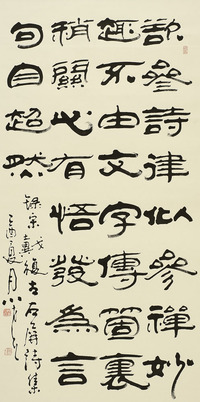 欲參詩律似參禪妙
趣不由文字傳箇裏
稍關心有悟發為言
句自超然
錄宋戴復古石屏詩集
酉夏月